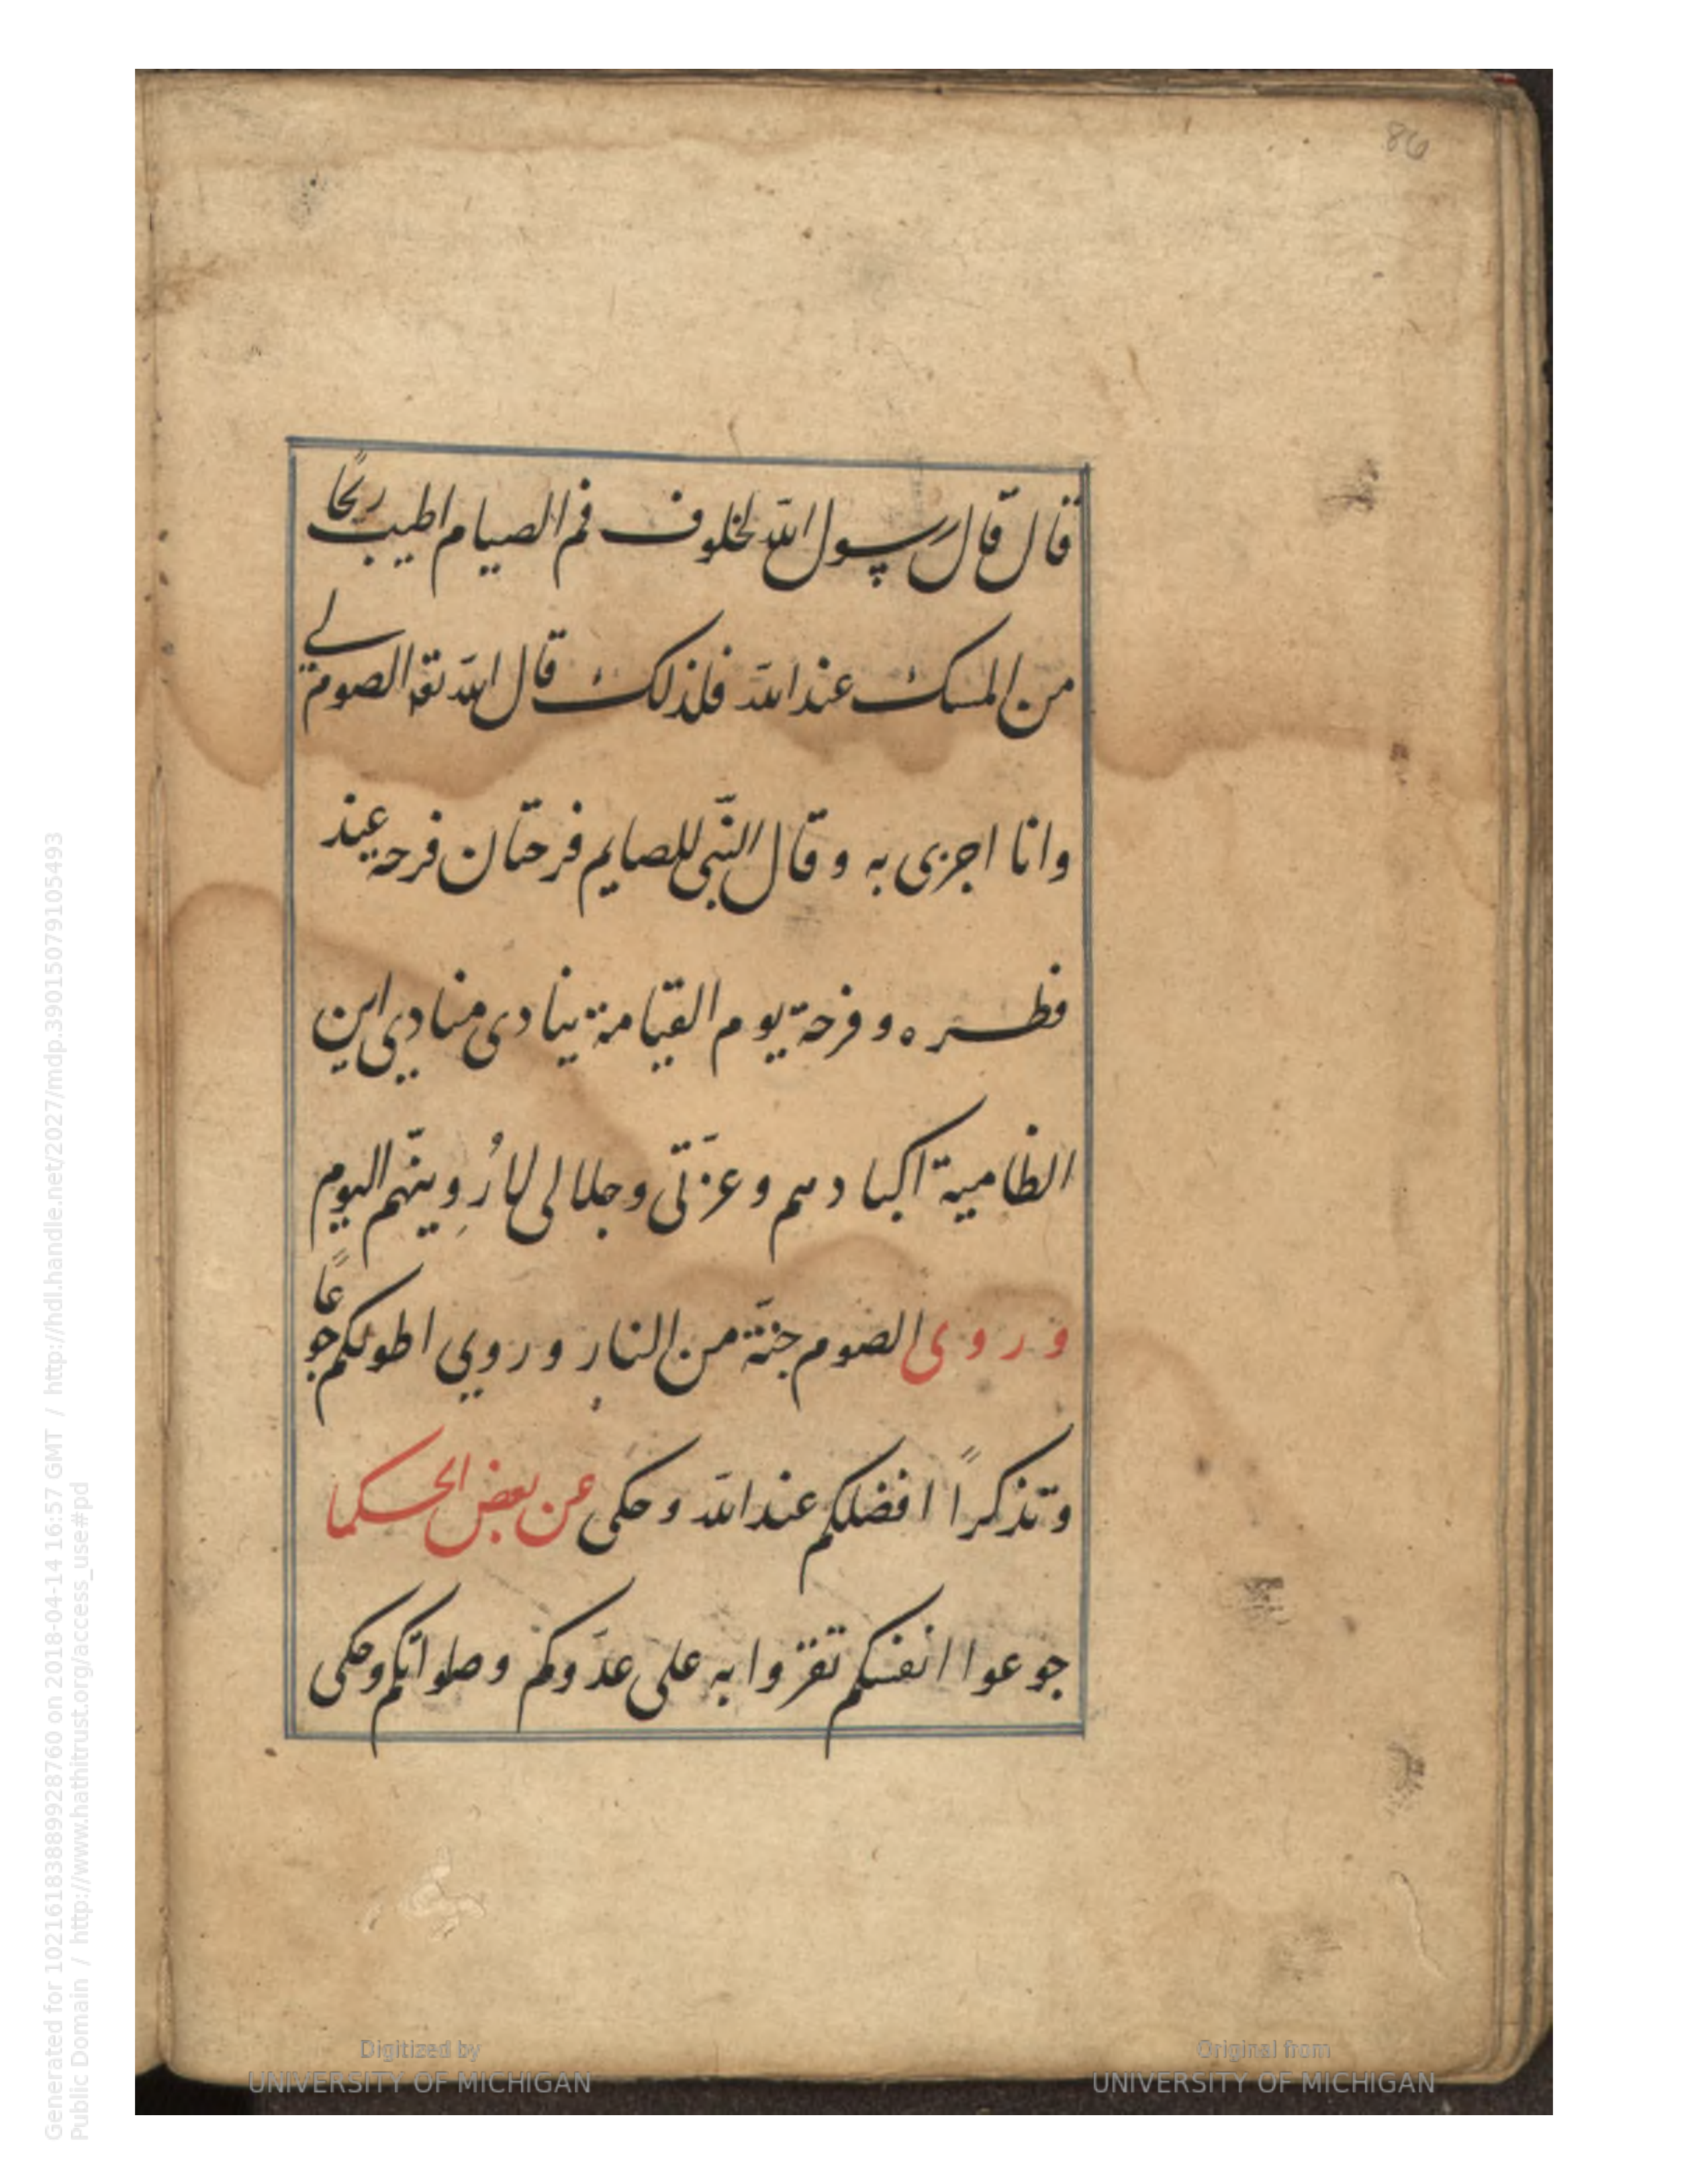 86
قال قال رسول الله لخلوف فم الصيام اطيب ريحًا
من المسك عند الله فلذلك قال الله تعه الصوم لي
وانا اجزى به وقال النّبى للصايم فرحتان فرحه عند
فطره وفرحة يوم القيامة ينادى منادي اين
الظامية اكبادهم وعزّتى وجلالى لاُرِوينهم اليوم
وروى الصوم جنّة من النار وروي اطولكم جوعًا
وتذكرًا افضلكم عند الله وحكى عن بعض الحكما
جوعوا انفسكم تغزوا به على عدّوكم وصلواتكم وحكى
Generated for 1021618388992876​0 on 2018-04-14 16:57 GMT / http://hdl.handle.net/2027/mdp.39015079105493
Public Domain / http://www.hathitrust.org/access_use#pd
Digitized by
UNIVERSITY OF MICHIGAN
Original from
UNIVERSITY OF MICHIGAN